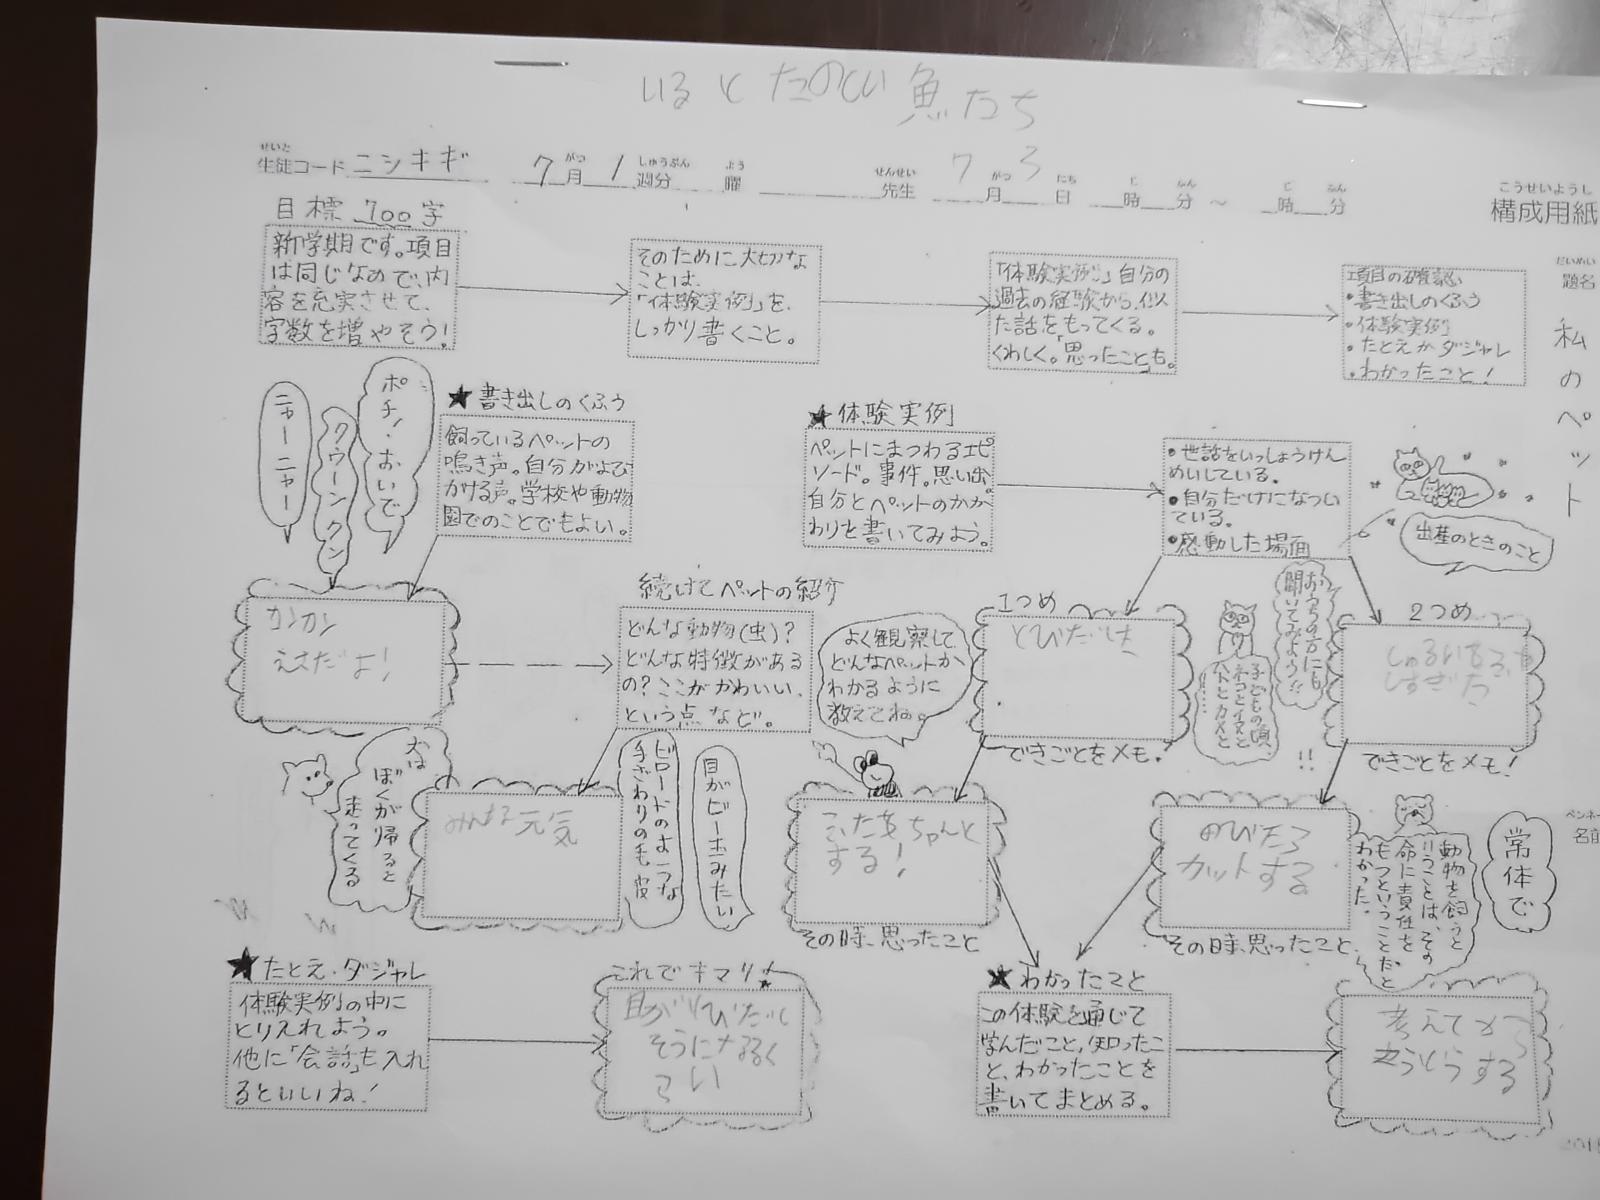 いるとたのしい魚たち
せいと がつ しゅうぶん よう せんせい がつ にち じ ふん じ ふん
生徒コード ニシキギ 7月1週分 曜 先生 7月3日 時 分 ~ 時 分
こうせいようし
構成用紙
だいめい
題名
私のペット
目標 700字
新学期です。項目
は同じなので、内
容を充実させて、
字数を増やそう!
そのために大切な
ことは、
「体験実例」を、
しっかり書くこと。
「体験実例」自分の
過去の経験から、似
た話をもってくる。
くわしく。「思ったこと」も。
項目の確認
・書き出しのくふう
・体験実例
・たとえかダジャレ
・わかったこと!
ポチ!おいで
クウーンクン
ニャーニャー
★書き出しのくふう
飼っているペットの
鳴き声。自分がよび
かける声。学校や動物
園でのことでもよい。
★体験実例
ペットにまつわるエピ
ソード。事件。思い出。
自分とペットのかか
わりを書いてみよう。
・世話をいっしょうけん
めいしている。
・自分だけになつい
ている。
・感動した場面
出産のときのこと
カンカン
えさだよ!
続けてペットの紹介
どんな動物(虫)?
どんな特徴がある
の?ここがかわいい、
という点など。
よく観察して
どんなペットか
わかるように
教えてね。
1つめ
とびだした
できごとをメモ!
おうちの方にも
聞いてみよう!!
子どもの頃、
ネコとイヌと
ハトとカメと
……
!!
2つめ
しすぎた
できごとをメモ!
犬は
ぼくが帰ると
走ってくる
みんな元気
ビロードのような
手ざわりの毛皮
目がビー玉みたい
ふたをちゃんと
する!
その時、思ったこと
のびたら
カットする
その時、思ったこと
動物を飼うと
いうことは、その
命に責任を
もつということだと
わかった。
常体で
ペンネーム
名前
★たとえ・ダジャレ
体験実例の中に
とりいれよう。
他に「会話」も入れ
るといいね!
これでキマリ!
目がとびだし
そうになるく
らい
★わかったこと
この体験を通じて
学んだこと、知ったこ
と、わかったことを
書いてまとめる。
考えてから
こうどうする